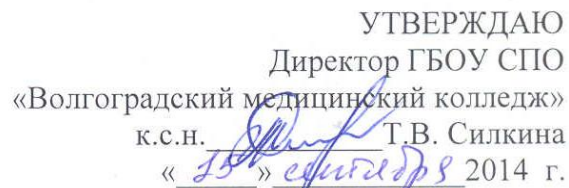 УТВЕРЖДАЮ
Директор ГБОУ СПО
«Волгоградский медицинский колледж»
к.с.н. Т.В. Силкина
« » сентября 2014 г.